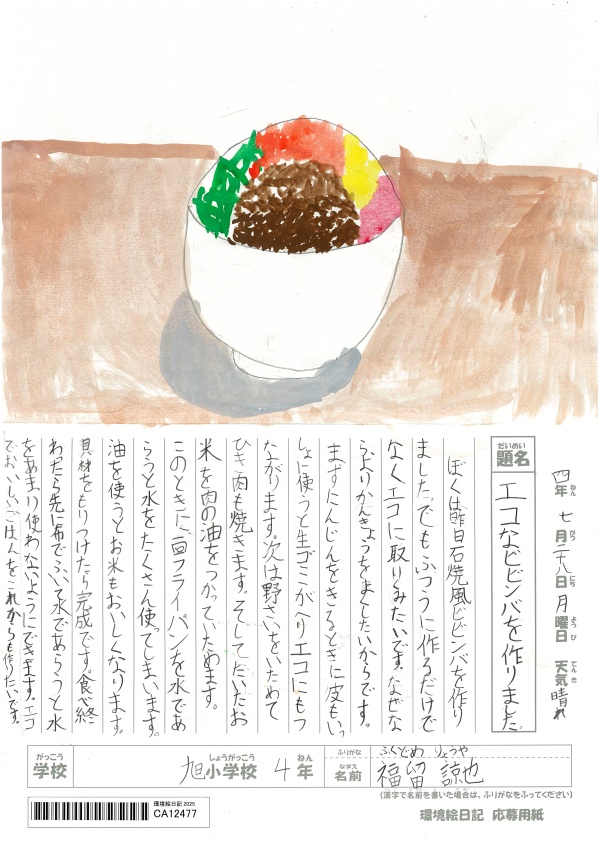 四年 七月二十八日 月曜日 天気 晴れ
題名 エコなビビンバを作りました。
ぼくは昨日石焼風ビビンバを作り
ました。でもふつうに作るだけで
なくエコに取りくみたいです。なぜな
らよりかんきょうをまもしたいからです。
まずにんじんをきるときに皮もいっ
しょに使うと生ゴミがへりエコにもつ
ながります。次は野さいをいためて
ひき肉も焼きます。そしてたいたお
米を肉の油をつかっていためます。
このときに、一回フライパンを水であ
らうと水をたくさん使ってしまいます。
油を使うとお米もおいしくなります。
具材をもりつけたら完成です。食べ終
わたら先に布でふいて水であらうと水
をあまり使わないようにできます。エコ
でおいしいごはんをこれからも作りたいです。
がっこう 学校 旭小学校 しょうがっこう 4年 ねん
ふりがな ふくどめ りょうや
なまえ 名前 福留 諒也
(漢字で名前を書いた場合は、ふりがなをふってください)
環境絵日記 2025
CA12477
環境絵日記 応募用紙